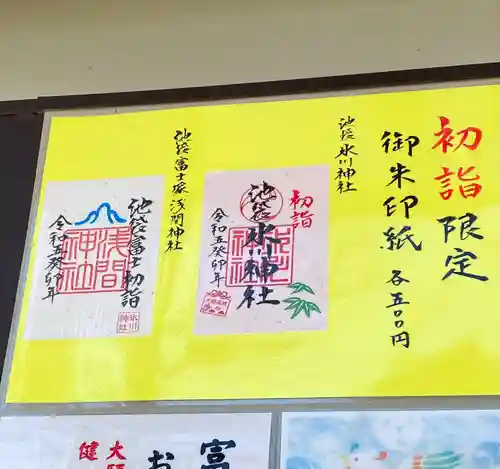 初詣限定
御朱印紙 各五〇〇円
池袋氷川神社
初詣
池袋氷川神社
令和五癸卯年
池袋富士塚浅間神社
池袋富士初詣
浅間神社
令和五癸卯年
氷川神社
富
お
大
健